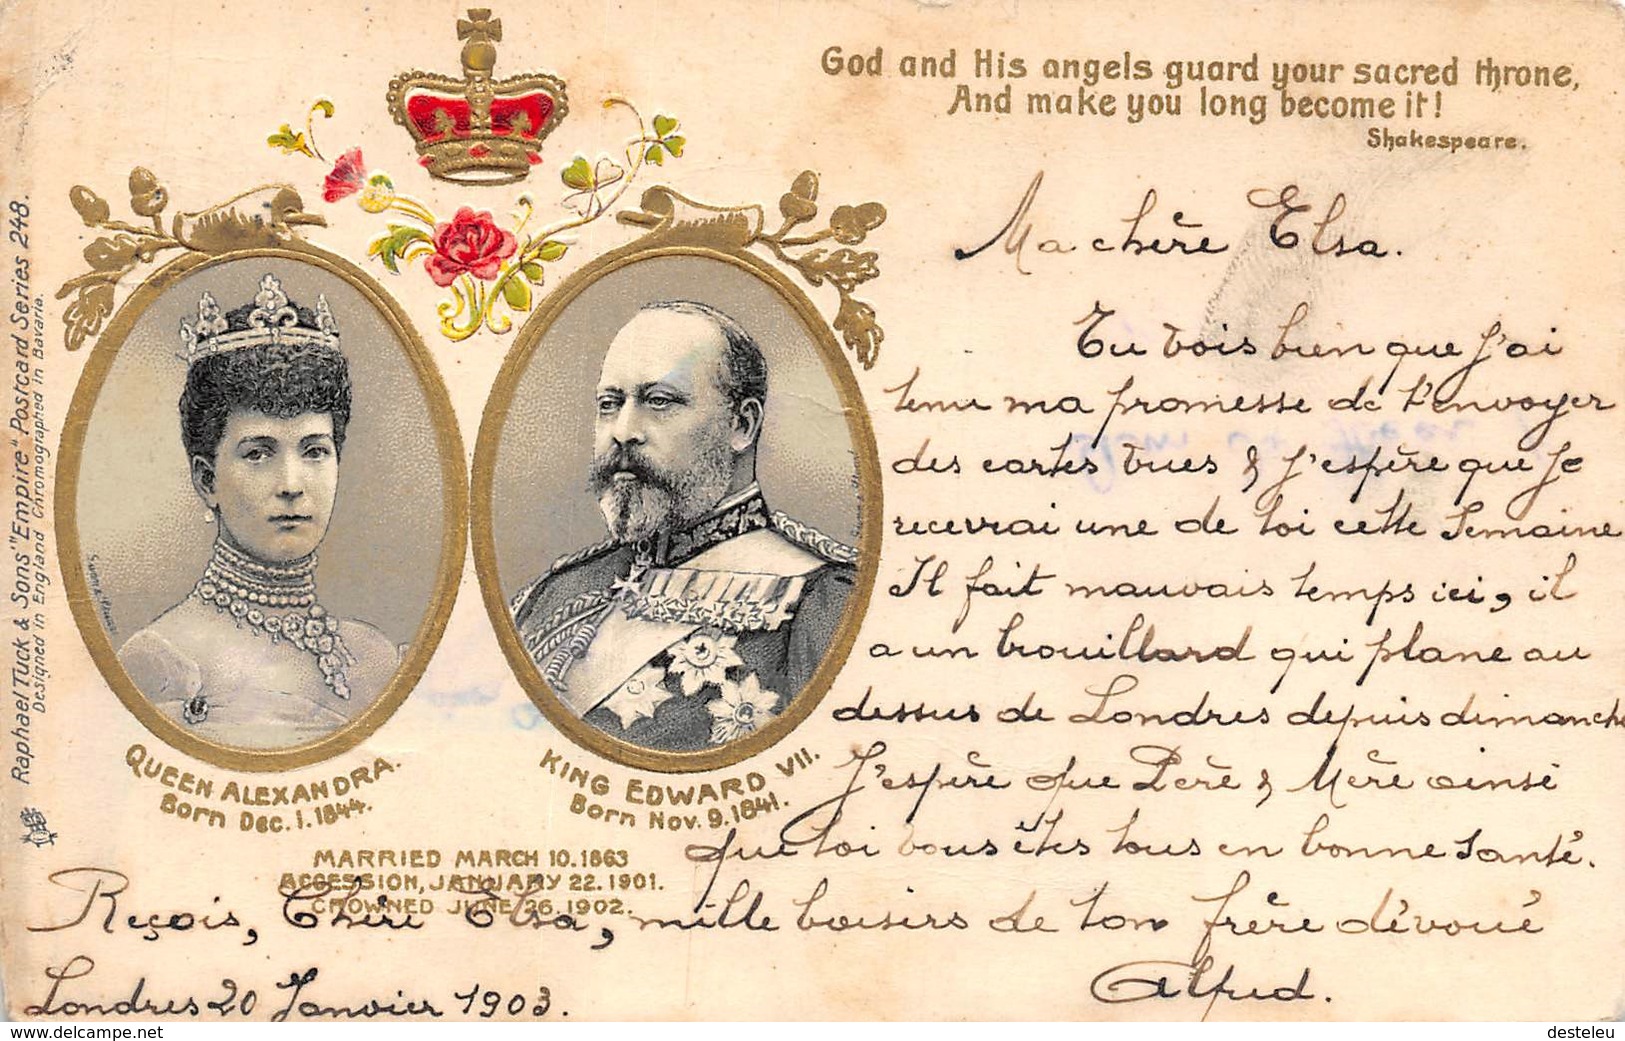 God and His angels guard your sacred throne,
And make you long become it!
Shakespeare.
Raphael Tuck & Sons' "Empire" Postcard Series 248.
Designed in England Chromographed in Bavaria.
QUEEN ALEXANDRA.
Born Dec. 1. 1844.
KING EDWARD VII.
Born Nov. 9. 1841.
MARRIED MARCH 10. 1863
ACCESSION, JANUARY 22. 1901.
CROWNED JUNE 26. 1902.
Ma chère Elsa.
Tu vois bien que j'ai
tenu ma promesse de t'envoyer
des cartes vues & j'espère que je
recevrai une de toi cette semaine
Il fait mauvais temps ici, il
a un brouillard qui plane au
dessus de Londres depuis dimanche
J'espère que Père & Mère ainsi
que toi vous êtes tous en bonne santé.
Reçois, Chère Elsa, mille baisers de ton frère dévoué
Alfred.
Londres 20 Janvier 1903.
https://www.delcampe.net
desteleu